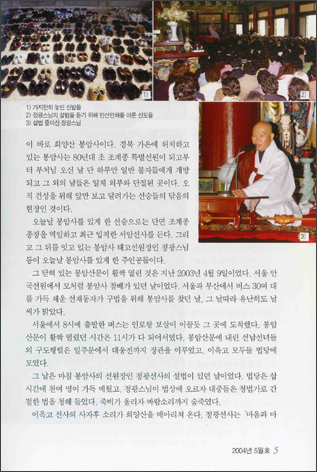 1)
2)
1) 가지런히 놓인 신발들
2) 정광스님의 설법을 듣기 위해 인산인해를 이룬 선도들
3) 설법 중이신 정광스님
3)
이 바로 희양산 봉암사이다. 경북 가은에 위치하고
있는 봉암사는 80년대 초 조계종 특별선원이 되고부
터 부처님 오신 날 단 하루만 일반 불자들에게 개방
되고 그 외의 날들은 일체 외부와 단절된 곳이다. 오
직 견성을 위해 앞만 보고 달려가는 선승들의 담음의
현장인 것이다.
오늘날 봉암사를 있게 한 선승으로는 단연 조계종
종정을 역임하고 최근 입적한 서암선사를 든다. 그리
고 그 뒤를 잇고 있는 봉암사 태고선원장인 정광스님
등이 오늘날 봉암사를 있게 한 주인공들이다.
그 닫혀 있는 봉암산문이 활짝 열린 것은 지난 2003년 4월 9일이었다. 서울 안
국선원에서 모처럼 봉암사 참배가 있던 날이었다. 서울과 부산에서 버스 30여 대
를 가득 채운 선재동자가 구법을 위해 봉암사를 찾던 날, 그 날따라 유난히도 날
씨가 맑았다.
서울에서 8시에 출발한 버스는 연로랑 보살이 이끌듯 그 곳에 도착했다. 봉암
산문이 활짝 열렸던 시간은 11시가 다 되어서였다. 봉암산문에 내린 선남선녀들
의 구도행렬은 일주문에서 대웅전까지 장관을 이루었고, 이윽고 모두들 법당에
모였다.
그 날은 마침 봉암사의 선원장인 정광선사의 설법이 있던 날이었다. 법당은 삽
시간에 천여 명이 가득 메웠고, 정광스님이 법상에 오르자 대중들은 청법가로 간
절한 법을 청해 들었다. 죽비가 울리자 바람소리까지 숨죽였다.
이윽고 선사의 사자후 소리가 희양산을 메아리쳐 온다. 정광선사는 '마음과 마
2004년 5월호 5